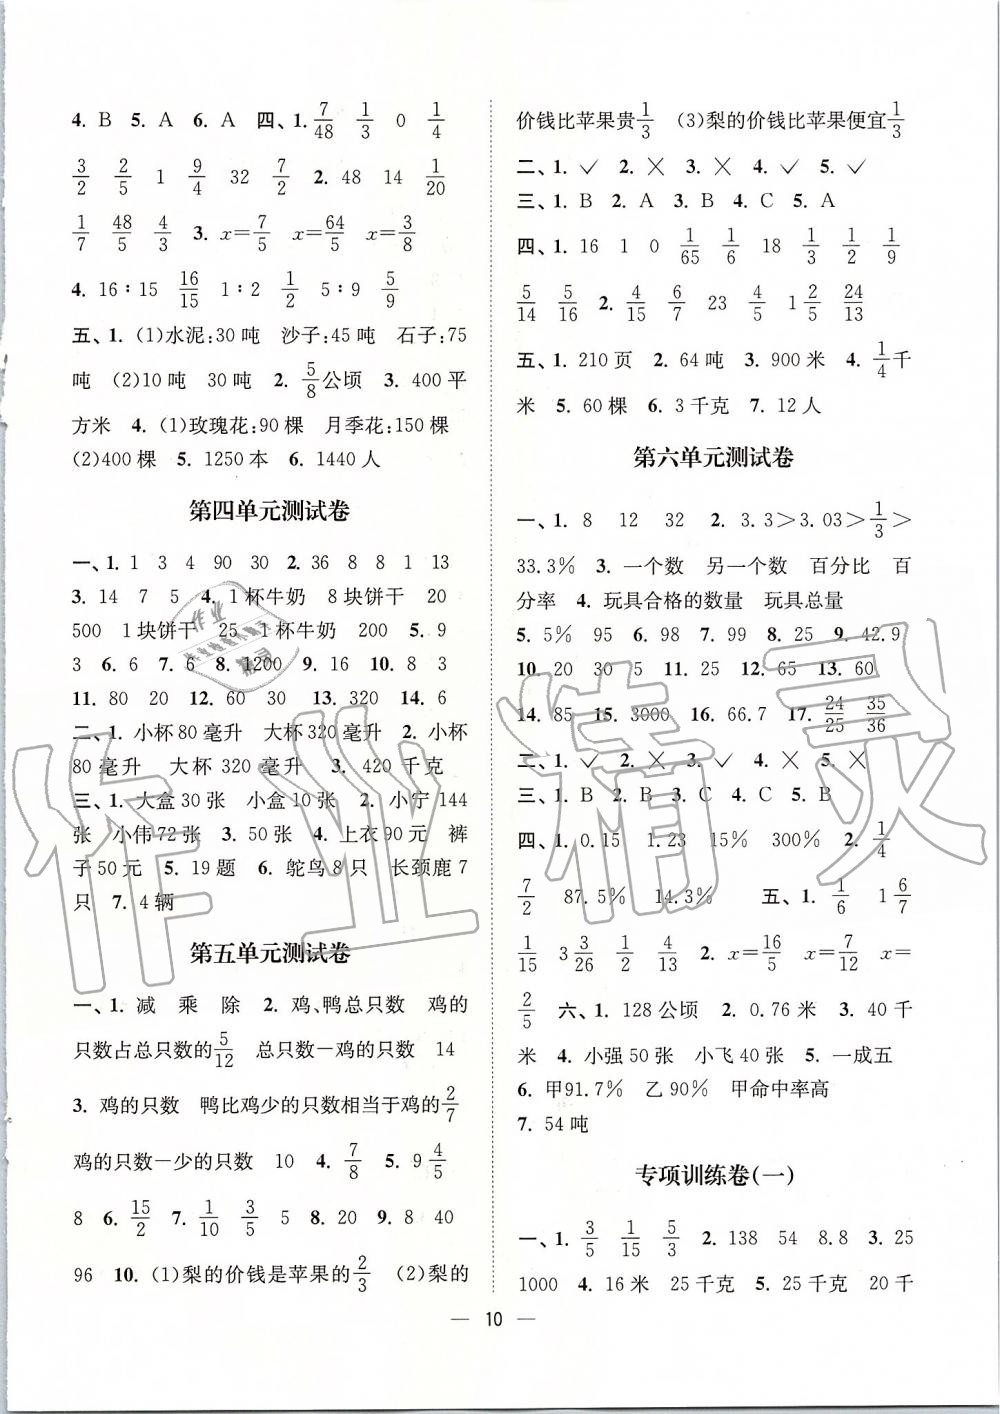 4. B 5. A 6. A 四、1. 7/48 1/3 0 1/4
3/2 2/5 1 9/4 32 7/2 2. 48 14 1/20
1/7 48/5 4/3 3. x=7/5 x=64/5 x=3/8
4. 16∶15 16/15 1∶2 1/2 5∶9 5/9
五、1. (1)水泥:30 吨 沙子:45 吨 石子:75
吨 (2)10 吨 30 吨 2. 5/8公顷 3. 400 平
方米 4. (1)玫瑰花:90 棵 月季花:150 棵
(2)400 棵 5. 1250 本 6. 1440 人
第四单元测试卷
一、1. 1 3 4 90 30 2. 36 8 8 1 13
3. 14 7 5 4. 1 杯牛奶 8 块饼干 20
500 1 块饼干 25 1 杯牛奶 200 5. 9
3 6. 6 7. 6 8. 1200 9. 16 10. 8 4
11. 80 20 12. 60 30 13. 320 14. 6
二、1. 小杯 80 毫升 大杯 320 毫升 2. 小杯
80 毫升 大杯 320 毫升 3. 420 千克
三、1. 大盒 30 张 小盒 10 张 2. 小宁 144
张 小伟 72 张 3. 50 张 4. 上衣 90 元 裤
子 50 元 5. 19 题 6. 鸵鸟 8 只 长颈鹿 7
只 7. 4 辆
第五单元测试卷
一、1. 减 乘 除 2. 鸡、鸭总只数 鸡的
只数占总只数的5/12 总只数－鸡的只数 14
3. 鸡的只数 鸭比鸡少的只数相当于鸡的2/7
鸡的只数－少的只数 10 4. 7/8 5. 9 4/5
8 6. 15/2 7. 1/10 3/5 5 8. 20 9. 8 40
96 10. (1)梨的价钱是苹果的2/3 (2)梨的
价钱比苹果贵1/3 (3)梨的价钱比苹果便宜1/3
二、1. ✓ 2. × 3. × 4. ✓ 5. ✓
三、1. B 2. A 3. B 4. C 5. A
四、1. 16 1 0 1/65 1/6 18 1/3 1/2 1/9
5/14 5/16 2. 4/15 6/7 23 4/5 1 2/5 24/13
五、1. 210 页 2. 64 吨 3. 900 米 4. 1/4千
米 5. 60 棵 6. 3 千克 7. 12 人
第六单元测试卷
一、1. 8 12 32 2. 3.3＞3.03＞1/3＞
33.3% 3. 一个数 另一个数 百分比 百
分率 4. 玩具合格的数量 玩具总量
5. 5% 95 6. 98 7. 99 8. 25 9. 42.9
10. 20 30 5 11. 25 12. 65 13. 60
14. 85 15. 3000 16. 66.7 17. 24/25 35/36
二、1. ✓ 2. × 3. ✓ 4. × 5. ×
三、1. B 2. B 3. C 4. C 5. B
四、1. 0.15 1.23 15% 300% 2. 1/4
7/2 87.5% 14.3% 五、1. 1/6 1 6/7
1/15 3 3/26 1/2 4/13 2. x=16/5 x=7/12 x=
2/5 六、1. 128 公顷 2. 0.76 米 3. 40 千
米 4. 小强 50 张 小飞 40 张 5. 一成五
6. 甲91.7% 乙 90% 甲命中率高
7. 54 吨
专项训练卷(一)
一、1. 3/5 1/15 5/3 2. 138 54 8.8 3. 25
1000 4. 16 米 25 千克 5. 25 千克 20 千
— 10 —
作业精灵